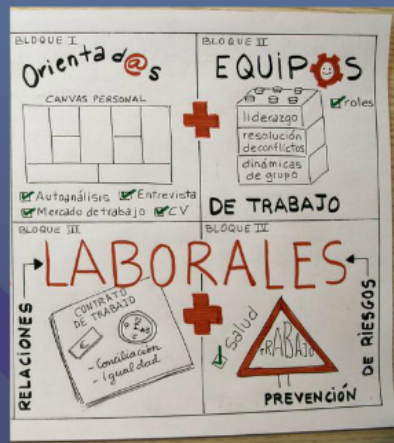 BLOQUE I
Orientad@s
CANVAS PERSONAL
Autoanálisis Entrevista
Mercado de trabajo CV
BLOQUE II
EQUIPOS
roles
liderazgo
resolución
deconflictos
dinámicas
de grupo
DE TRABAJO
BLOQUE III
BLOQUE IV
LABORALES
RELACIONES
CONTRATO
DE TRABAJO
€
- Conciliación
- Igualdad
Salud
TRABAJO
PREVENCIÓN
DE RIESGOS